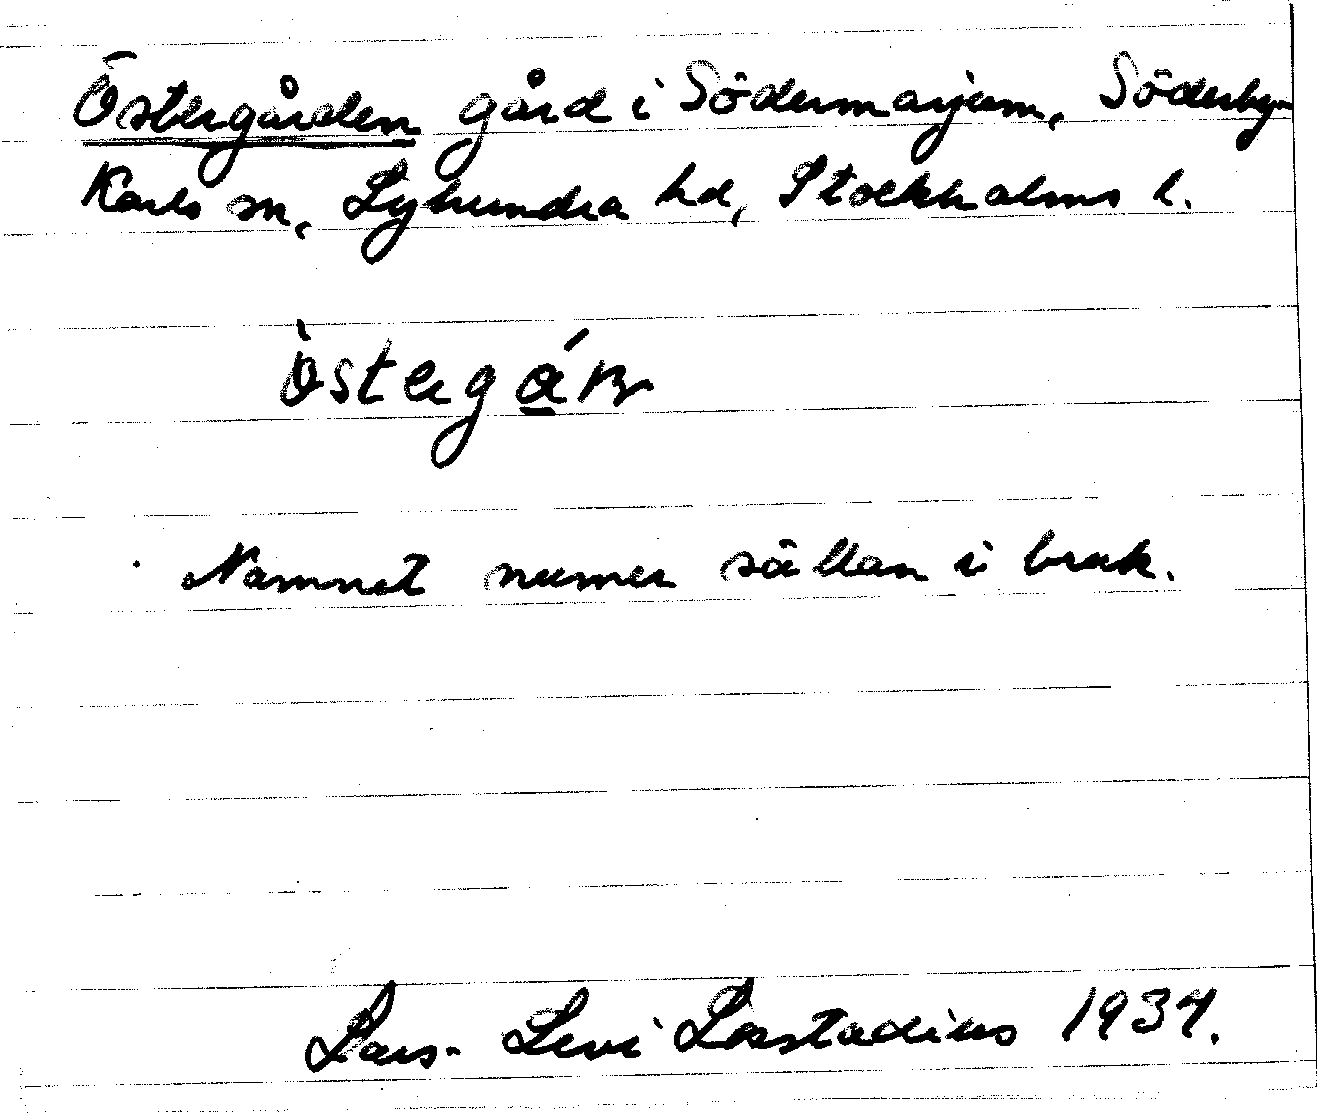 Östergården gård i Södermarjum, Söderby-
Karls sn, Lyhundra hd, Stockholms l.
Namnet numer sällan i bruk.
Lars-Levi Læstadius 1934.